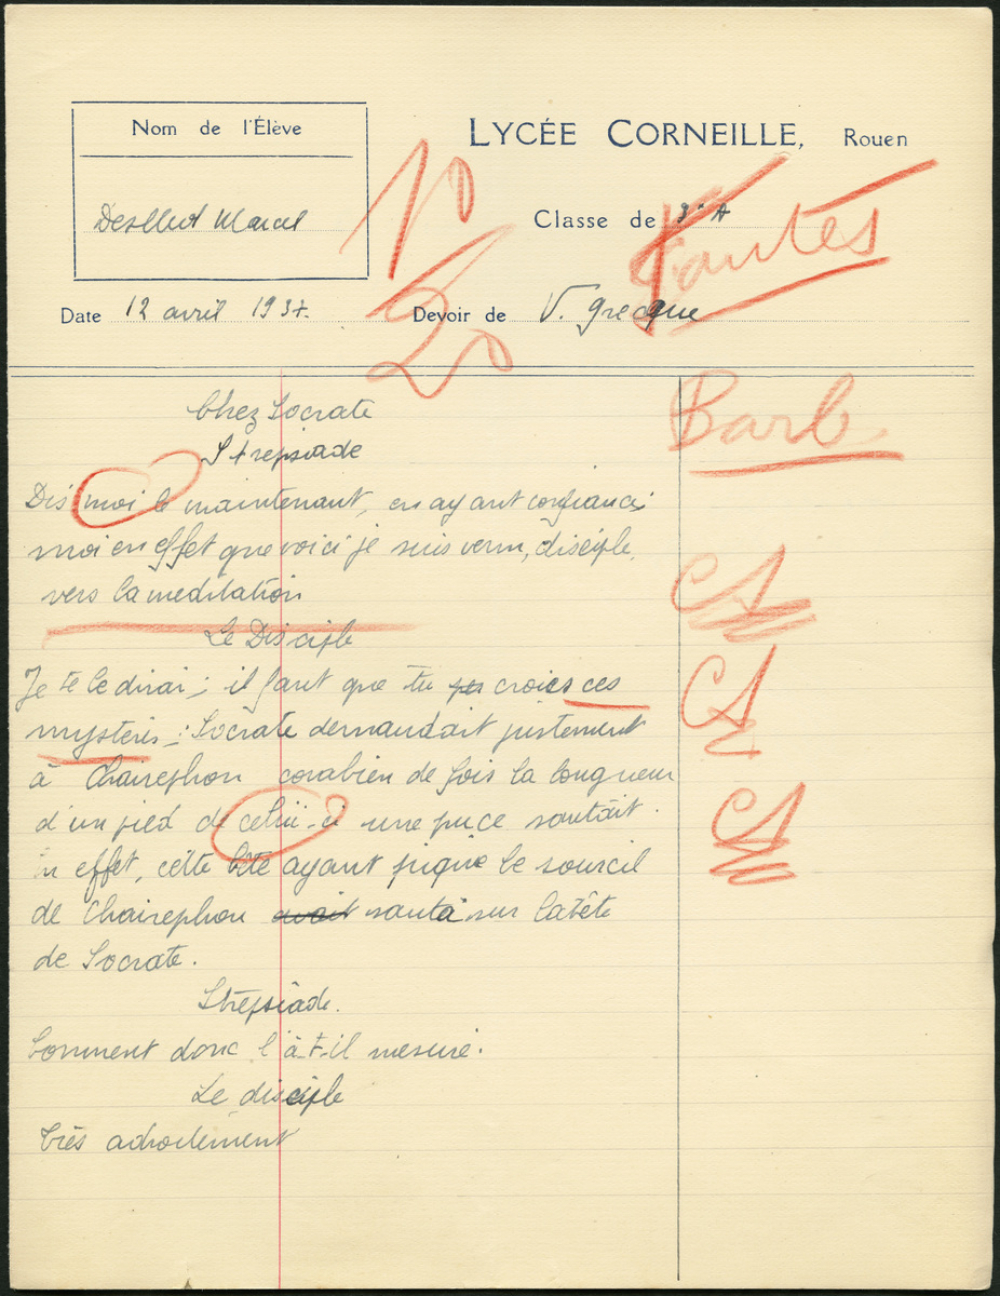 Nom de l'Élève
LYCÉE CORNEILLE, Rouen
Marcel
Classe de 3e A
10
20
Fautes
Date 12 avril 1937.
Devoir de V. grecque
Chez Socrate
Barb
Strepsiade
Dis moi le maintenant, en ayant confiance
moi en effet que voici je suis venu, disciple,
vers la meditation
Le Disciple
Je te le dirai ; il faut que tu croies ces
mystères ; Socrate demandait justement
à Chairephon combien de fois la longueur
d'un pied de celui-ci une puce sautait.
En effet, cette bête ayant piqué le sourcil
de Chairephon avait sauta sur la tête
de Socrate.
Strepsiade.
Comment donc l'a-t-il mesuré.
Le disciple
Très adroitement